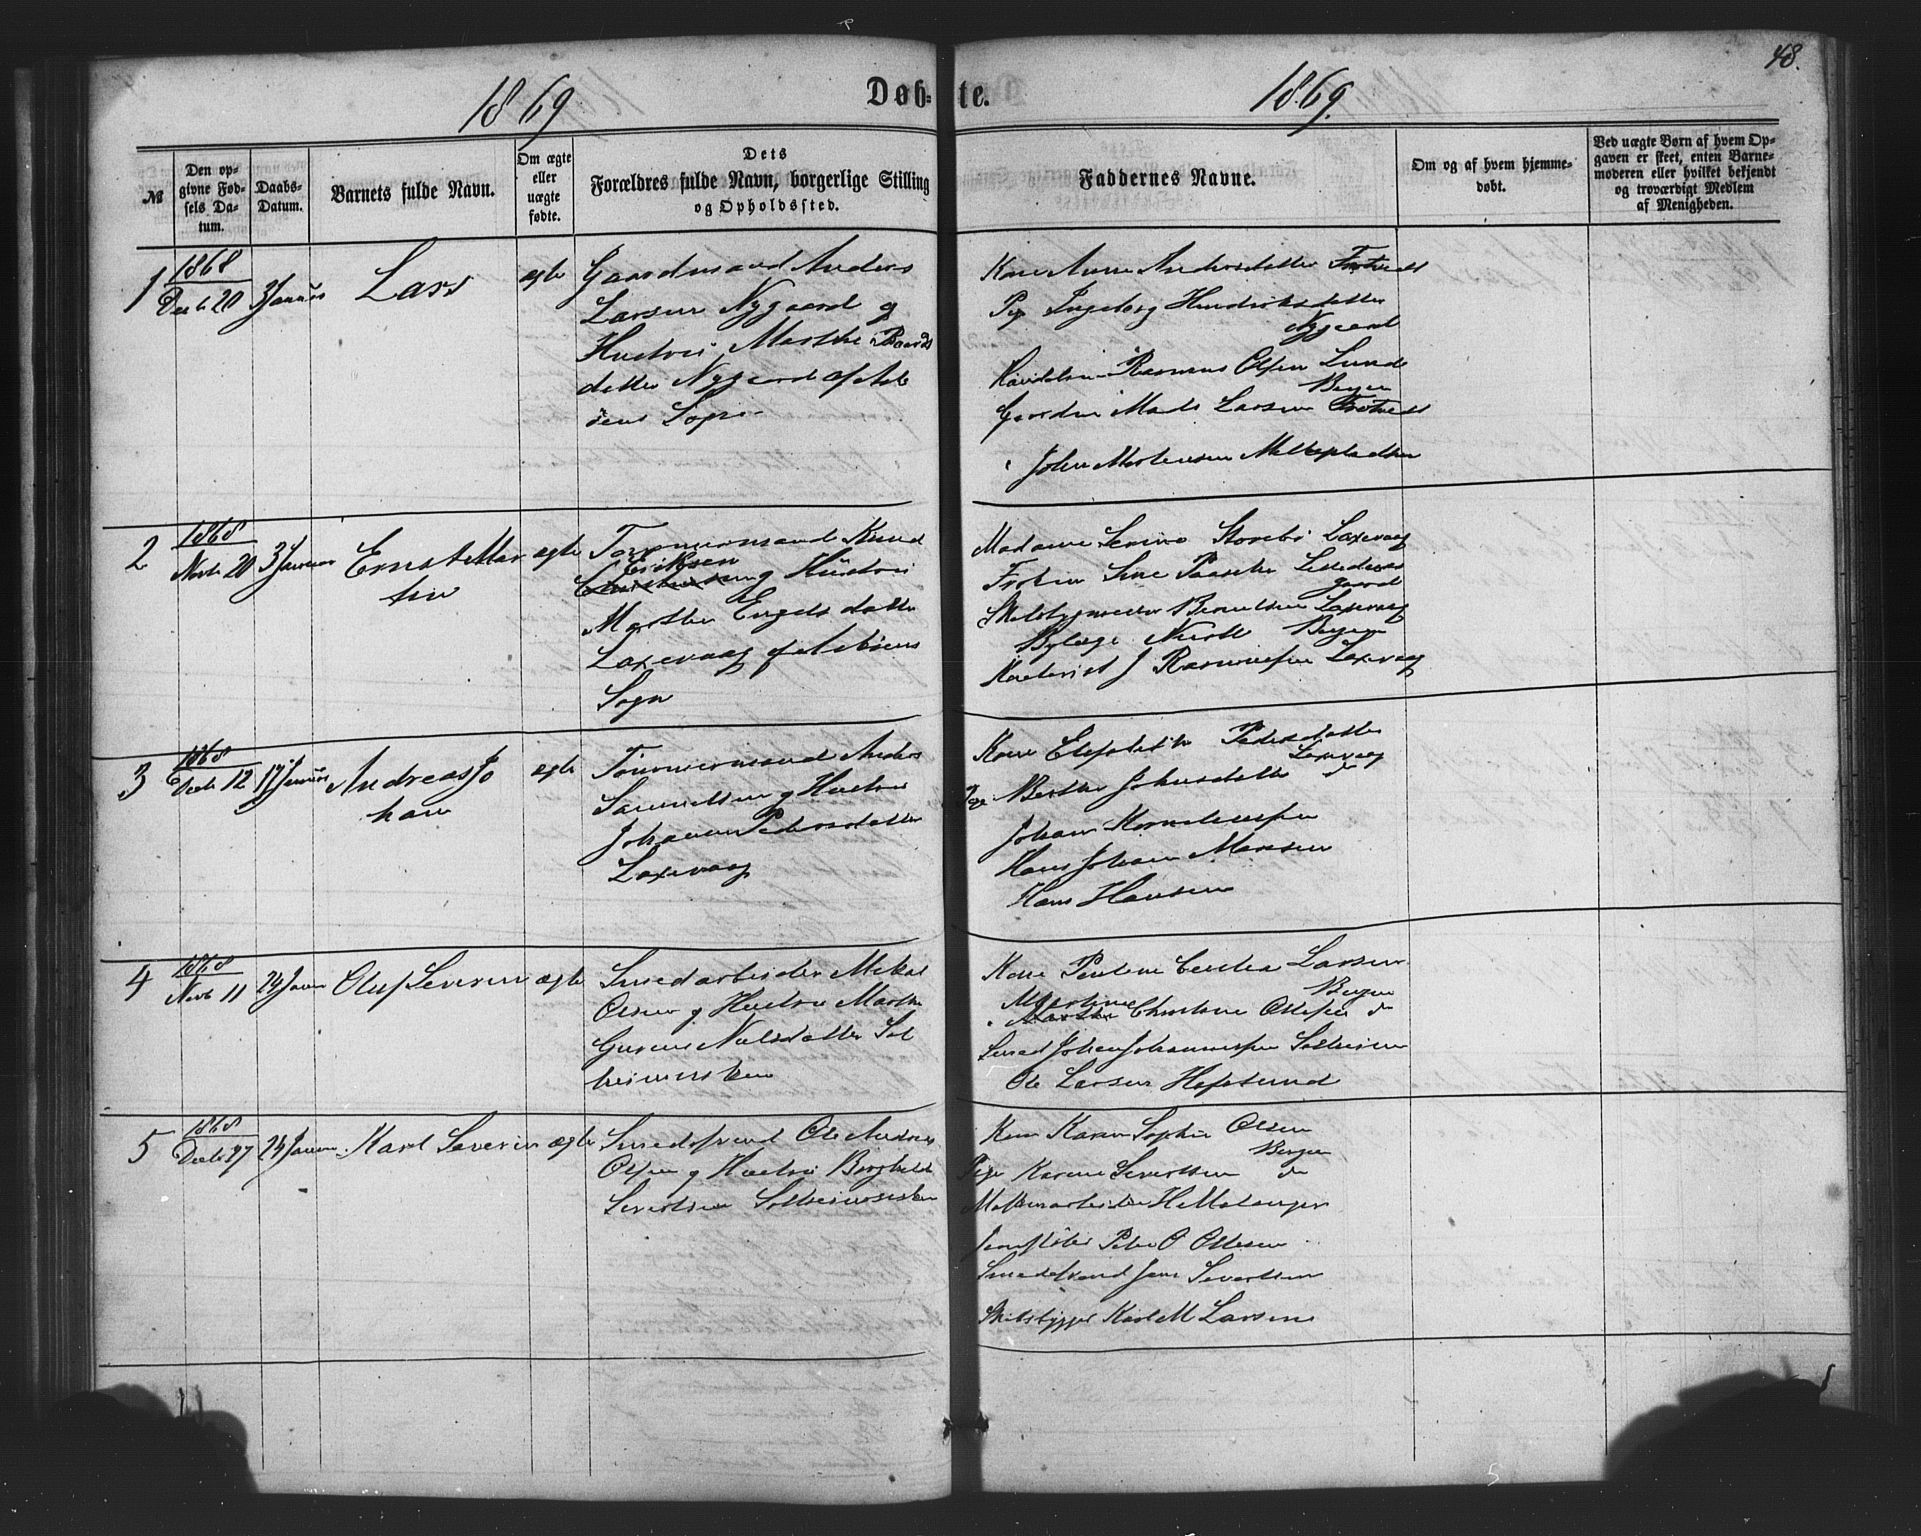 48.
1869
Døb-te.
1869.
№
Den op-
givne Fød-
sels Da-
tum.
Daabs-
Datum.
Barnets fulde Navn.
Om ægte
eller
uægte
fødte.
Dets
Forældres fulde Navn, borgerlige Stilling
og Opholdssted.
Faddernes Navne.
Om og af hvem hjemme-
døbt.
Ved uægte Børn af hvem Op-
gaven er skeet, enten Barne-
moderen eller hvilket bekjendt
og troværdigt Medlem
af Menigheden.
1
1868
Decb 20
3 Januar
Lars
ægte
Gaardmand Anders
Larsen Nygaard og
Hustru Marthe Baards
datter Nygaard af
Sogn
Kone Anne Andersdatter
Pige Ingeborg Hendriksdatter
Nygaard
Rasmus Olsen Lund
Bergen
Mads Larsen
John Mortensen
2
1868
Novb 20
3 Januar
Ernst Mar
tin
ægte
Tømmermand Knud
Eriksen
og Hustru
Marthe Engelsdatter
Laxevaag af Askøens
Sogn
Madame Serine Storebø Laxevaag
Frøken Sine
gaard
Skibsbygmester Berentsen Laxevaag
Bergen
J Rasmussen Laxevaag
3
1868
Decb 12
17 Januar
Andreas Jo
han
ægte
Tømmermand Anders
Samuelsen og Hustru
Johanne Pedersdatter
Laxevaag
Kone Elisabeth Pedersdatter
Laxevaag
Pige Berthe Johnsdatter do
Johan Korneliussen
Hans Johan Monsen
Hans Hansen
4
1868
Novb 11
24 Januar
Oluf Severin
ægte
Smedarbeider Mikal
Olsen og Hustru Marthe
Gurine Nielsdatter Sol
heimsviken
Kone Pauline Cecilia Larsen
Bergen
Martine
Christine Ottesen do
Smed Johan Johannessen Solheim
Ole Larsen Hopsund
5
1868
Decb 27
24 Januar
Karl Severin
ægte
Smedesvend Ole Andreas
Olsen og Hustru Borghild
Sivertsen Solheimsviken
Kone Karen Sophie Olsen
Bergen
Pige Karen Sivertsen do
Maskinarbeider H Matanger
Peter O Ottesen
Smedesvend Jens Sivertsen
Skibsbygger Karl M Larsen